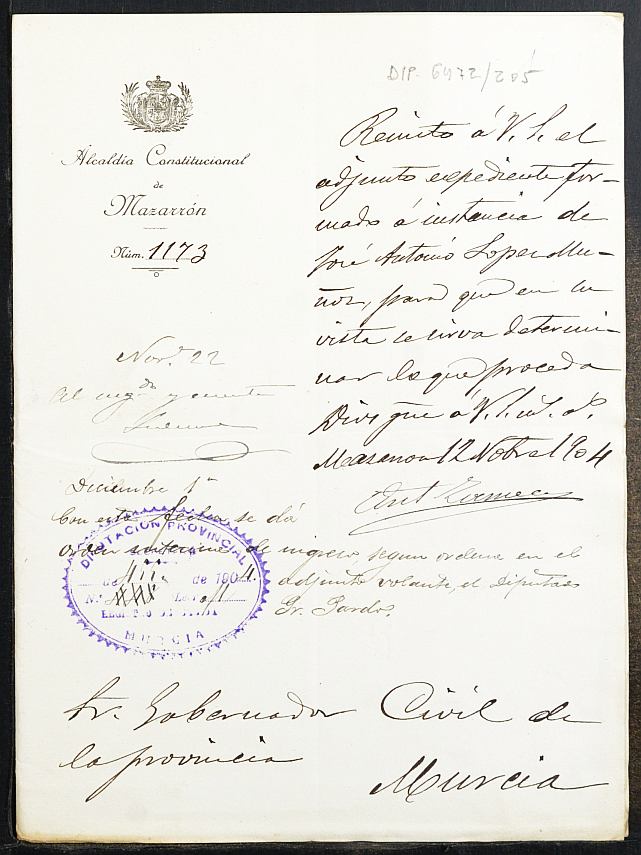 DIP. 6472/205
Alcaldía Constitucional
de
Mazarrón
Núm. 1173
Remito á V. S. el
adjunto expediente for-
mado á instancia de
José Antonio Lopez Mu-
ñoz, para que en su
vista se sirva determi-
nar lo que proceda
Dios gue á V. S. m. a.
Mazarron 12 Nobre 1904
Novre 22
Al
Diciembre 1º
Con esta fecha se dá
orden de ingreso segun ordena en el
adjunto volante, el Diputado
Sr. Pardo.
DIPUTACIÓN PROVINCIAL
de de 1904
MURCIA
Sr. Gobernador Civil de
la provincia
Murcia